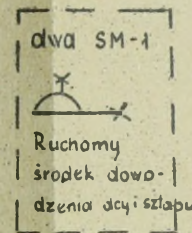 dwa SM-1
Ruchomy
środek dowo-
dzenia dcy i sztabu